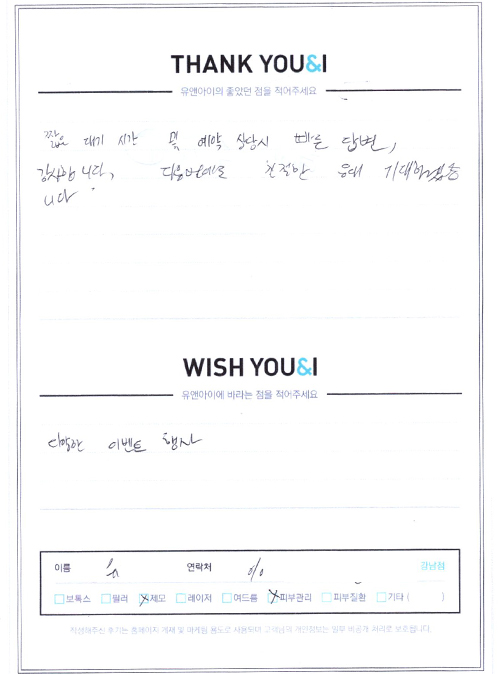 THANK YOU&I
유앤아이의 좋았던 점을 적어주세요
짧은 대기 시간 및 예약 상담시 빠른 답변,
감사합니다, 다음번에도 친절한 응대 기대하겠습
니다
WISH YOU&I
유앤아이에 바라는 점을 적어주세요
다양한 이벤트 행사
이름 연락처 강남점
보톡스 필러 제모 레이저 여드름 피부관리 피부질환 기타 ( )
작성해주신 후기는 홈페이지 게재 및 마케팅 용도로 사용되며 고객님의 개인정보는 일부 비공개 처리로 보호됩니다.